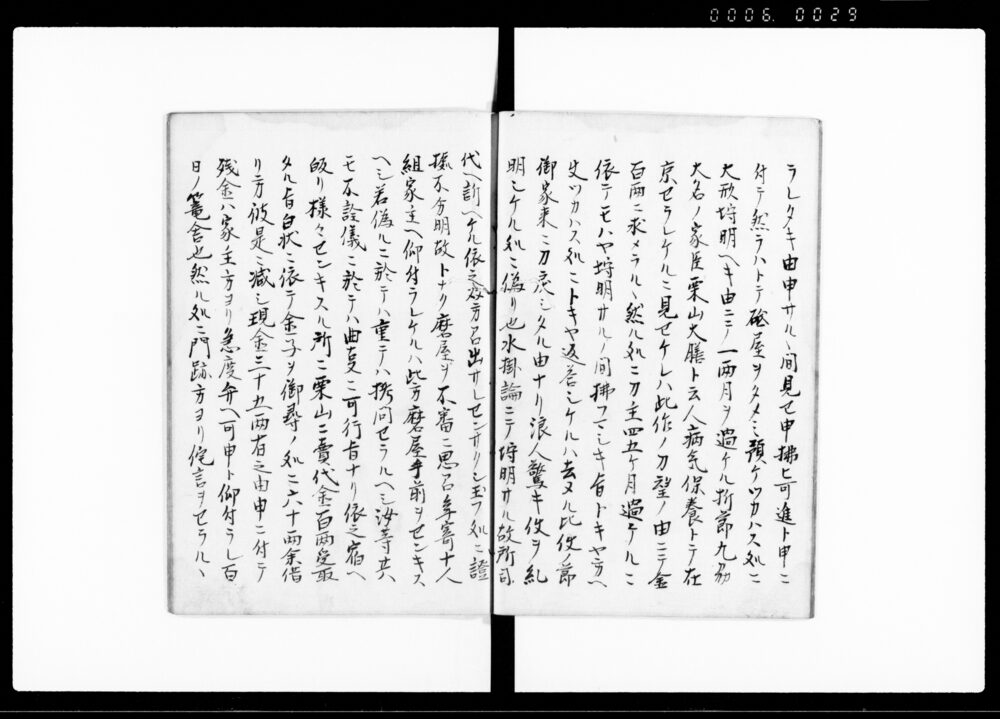 0006. 0029
ラレタキ由申サル丶間見セ申拂ヒ可進ト申ニ
付テ然ラハトテ磨屋ヲタメミ預ケツカハス処ニ
大形埒明ヘキ由ニテ一両月ヲ過ケル折節九刕
大名ノ家臣栗山大膳ト云人病気保養トテ在
京セラレケルニ見セケレハ此作ノ刀望ノ由ニテ金
百両ニ求メラル丶然ル処ニ刀主四五ケ月過テルニ
依テモハヤ埒明サルノ間拂フマシキ旨トキヤ方ヘ
丈ツカハス処ニトキヤ返答シケルハ去ヌル比伩ノ節
御家来ニ刀戻シタル由ナリ浪人驚キ伩ヲ糺
明シケル処ニ偽リ也水掛論ニテ埒明サル故所司
代ヘ訴ヘケル依之双方召出サレセンサリシ玉フ処ニ證
拠不分明故トナリ磨屋ヲ不審ニ思召年寄十人
組家主ヘ仰付ラレケルハ此方磨屋手前ヲセンキス
ヘシ若偽ルニ於テハ重テハ拷問セラルヘシ汝等共ハ
モ不詮儀ニ於テハ曲叓ニ可行旨ナリ依之宿ヘ
皈リ様々センキスル所ニ栗山ニ賣代金百両受取
タル旨白状ニ依テ金子ヲ御尋ノ処ニ六十両余借
リ方彼是ニ減シ現金三十五両有之由申ニ付テ
残金ハ家主方ヨリ急度弁ヘ可申ト仰付ラレ百
日ノ篭舎也然ル処ニ門跡方ヨリ侘言ヲセラル丶